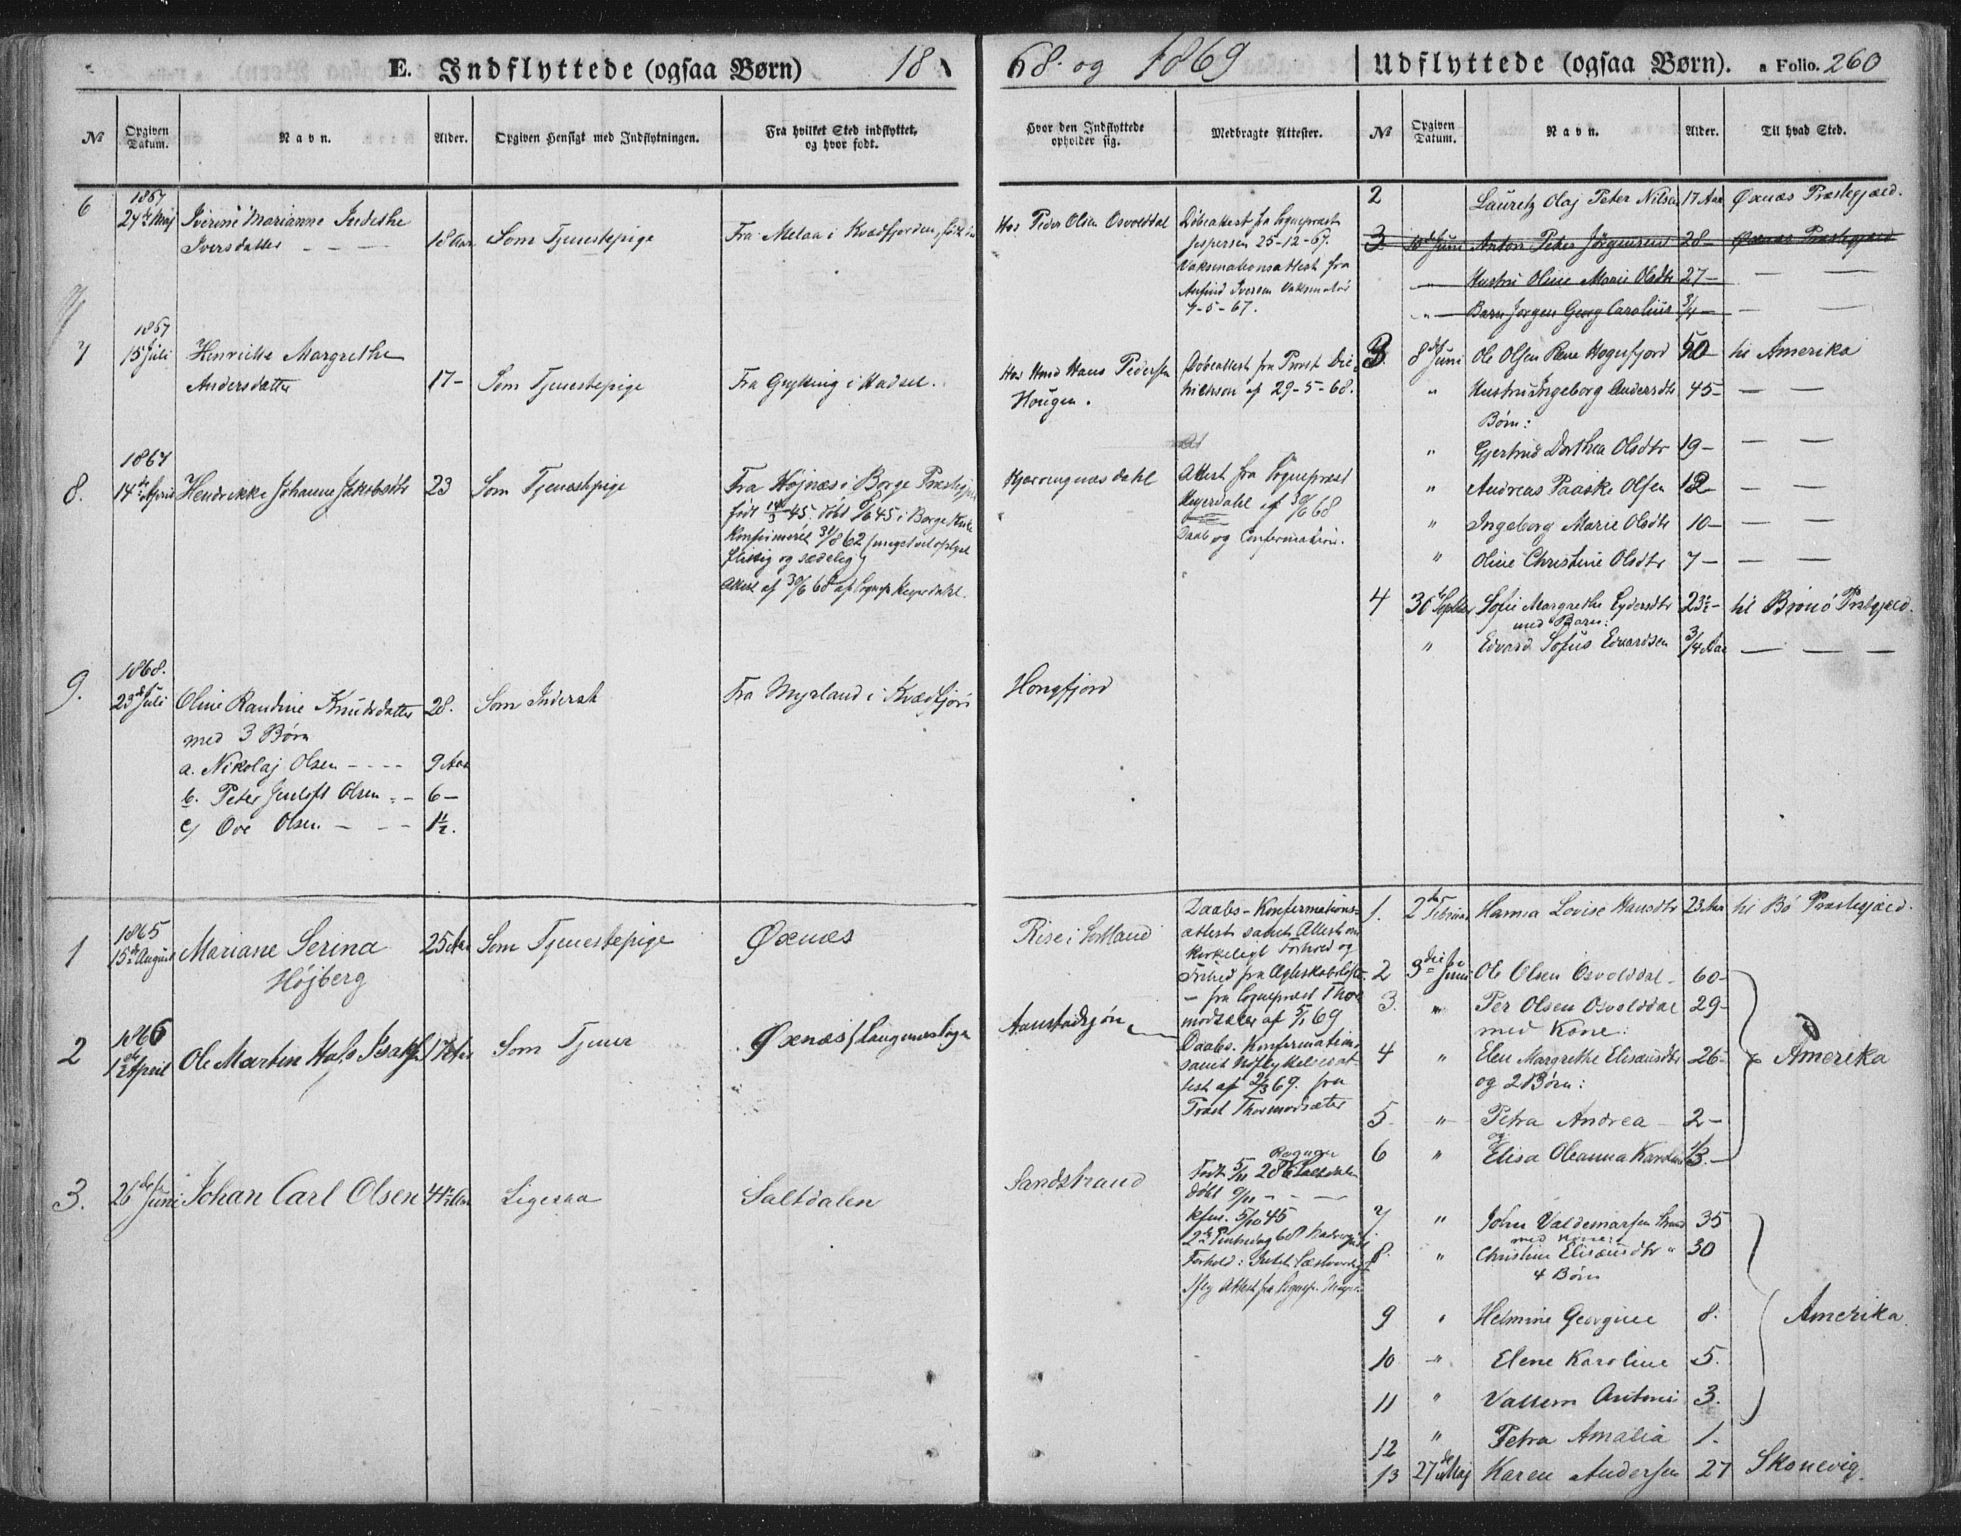 E. Indflyttede (ogsaa Børn) 18
68. og 1869
Udflyttede (ogsaa Børn). a Folio. 260
№
Opgiven Datum.
Navn.
Alder.
Opgiven Hensigt med Indflytningen.
Fra hvilket Sted indflyttet, og hvor født.
Hvor den Indflyttede opholder sig.
Medbragte Attester.
№
Opgiven Datum.
Navn.
Alder.
Til hvad Sted.
6
1867
24de Maj
Iverine Marianne
Iversdatter
18 Aar
Som Tjenestepige
Fra Melaa i Kvædfjorden
Hos Peder Olsen Osvolddal
Døbeattest fra Sognepræst
Jespersen 25-12-67.
Vaksinationsattest fra
Iversen Vaksinatør
7-5-67.
7
1867
15 Juli
Henrikke Margrethe
Andersdatter
17-
Som Tjenestepige
Fra Grytting i Hadsel.
Hans Pedersen
Hougen.
Døbeattest fra Provst
af 29-5-68.
8.
1867
14de April
Hendrikke Johanne Jakobsdtr
23
Som Tjenestepige
Fra Højnæs i Borge Præstegj
født 14/3 45. døbt 6/6 45 i Borge Kirke
Konfirmeret 31/8 62 (meget vel oplyst
flittig og sædelig)
Attest af 30/6 68 af Sognepr Heyerdahl.
Hjorengnæsdahl
Attest fra Sognepræst
Heyerdahl af 30/6 68
Daab og Confirmation.
9.
1868.
23de Juli
Oline Randine Knudsdatter
28.
Som Inderst
Fra Myrland i Kvædfjord
Hongfjord
med 3 Børn
a. Nikolaj Olsen - - - -
9 Aar
b. Peter Olsen - -
6 -
c/ Ove Olsen. - - -
1½.
1
1865
15de August
Mariane Serina
Højberg
25 Aar
Som Tjenestepige
Øxnæs
Rise i Sortland
Daabs- Konfirmations-
attest samt Attest om
kirkeligt Forhold og
Frihed fra Ægteskabsløfte
- fra Sognepræst Thor
modsæter af 5/1 69
2
1866
1ste April
Ole Martin Hals Isaks.
17 Aar
Som Tjener
Øxnæs (Langenesloge
Aunstadsjøn
Daabs. Konfirmations
samt Udflyttelsesat-
test af 2/3 69. fra
Præst Thormodsæter
3.
26de Juni
Johan Carl Olsen
41½ Aar
Ligesaa
Saltdalen
Sandstrand
Født 5/10 28 Saltdalen
døbt 9/10 - - -
Kfm. 5/10 45
Forhold:
2
Lauretz Olaj Peter Nilsen
17 Aar
Øxnæs Præstegjæld.
3
10de Juni
Anton Peter Jørgensen
28-
Øxnæs Præstegjæld
" Hustru Oline Marie Olsdtr
27-
— —
" Barn Jørgen Georg Carolius
3/4 -
— —
3
8de Juni
Ole Olsen Rene Hognfjord
50-
til Amerika
" Hustru Ingeborg Andersdtr
45-
— —
Børn:
" Gjertrud Dorthea Olsdtr
19-
— —
" Andreas Paaske Olsen
12
— —
" Ingeborg Marie Olsdtr
10-
— —
" Oline Christine Olsdtr
7-
— —
4
30te Septbr
Sofie Margrethe Eydersdtr
23½-
til Brønø Prstgjæld.
med Barn:
" Edvard Sofus Edvardsen
3/4 Aar
— — —
1.
2den Februar
Hanna Lovise Hansdtr
23 Aar
til Bø Præstegjæld.
2
3die Juni
Ole Olsen Osvolddal-
60-
3.
"
Per Olsen Osvolddal
29-
med Kone:
4
"
Elen Margrethe Elisæusdtr
26-
Amerika
og 2 Børn:
5
"
Petra Andrea -
2-
og
6
"
Elisa Oleanna Karoline
1/3.-
7.
"
John Valdemarsen Strand
35
med Kone:
8.
"
Christine Elisæusdtr "
30
4 Børn
9
"
Helmine Georgine
8.
Amerika.
10
"
Elene Karoline
5.
11
"
Antoni
3.
12
"
Petra Amalia
1.
13
27de Maj
Karen Andersen
27
Skonevig.